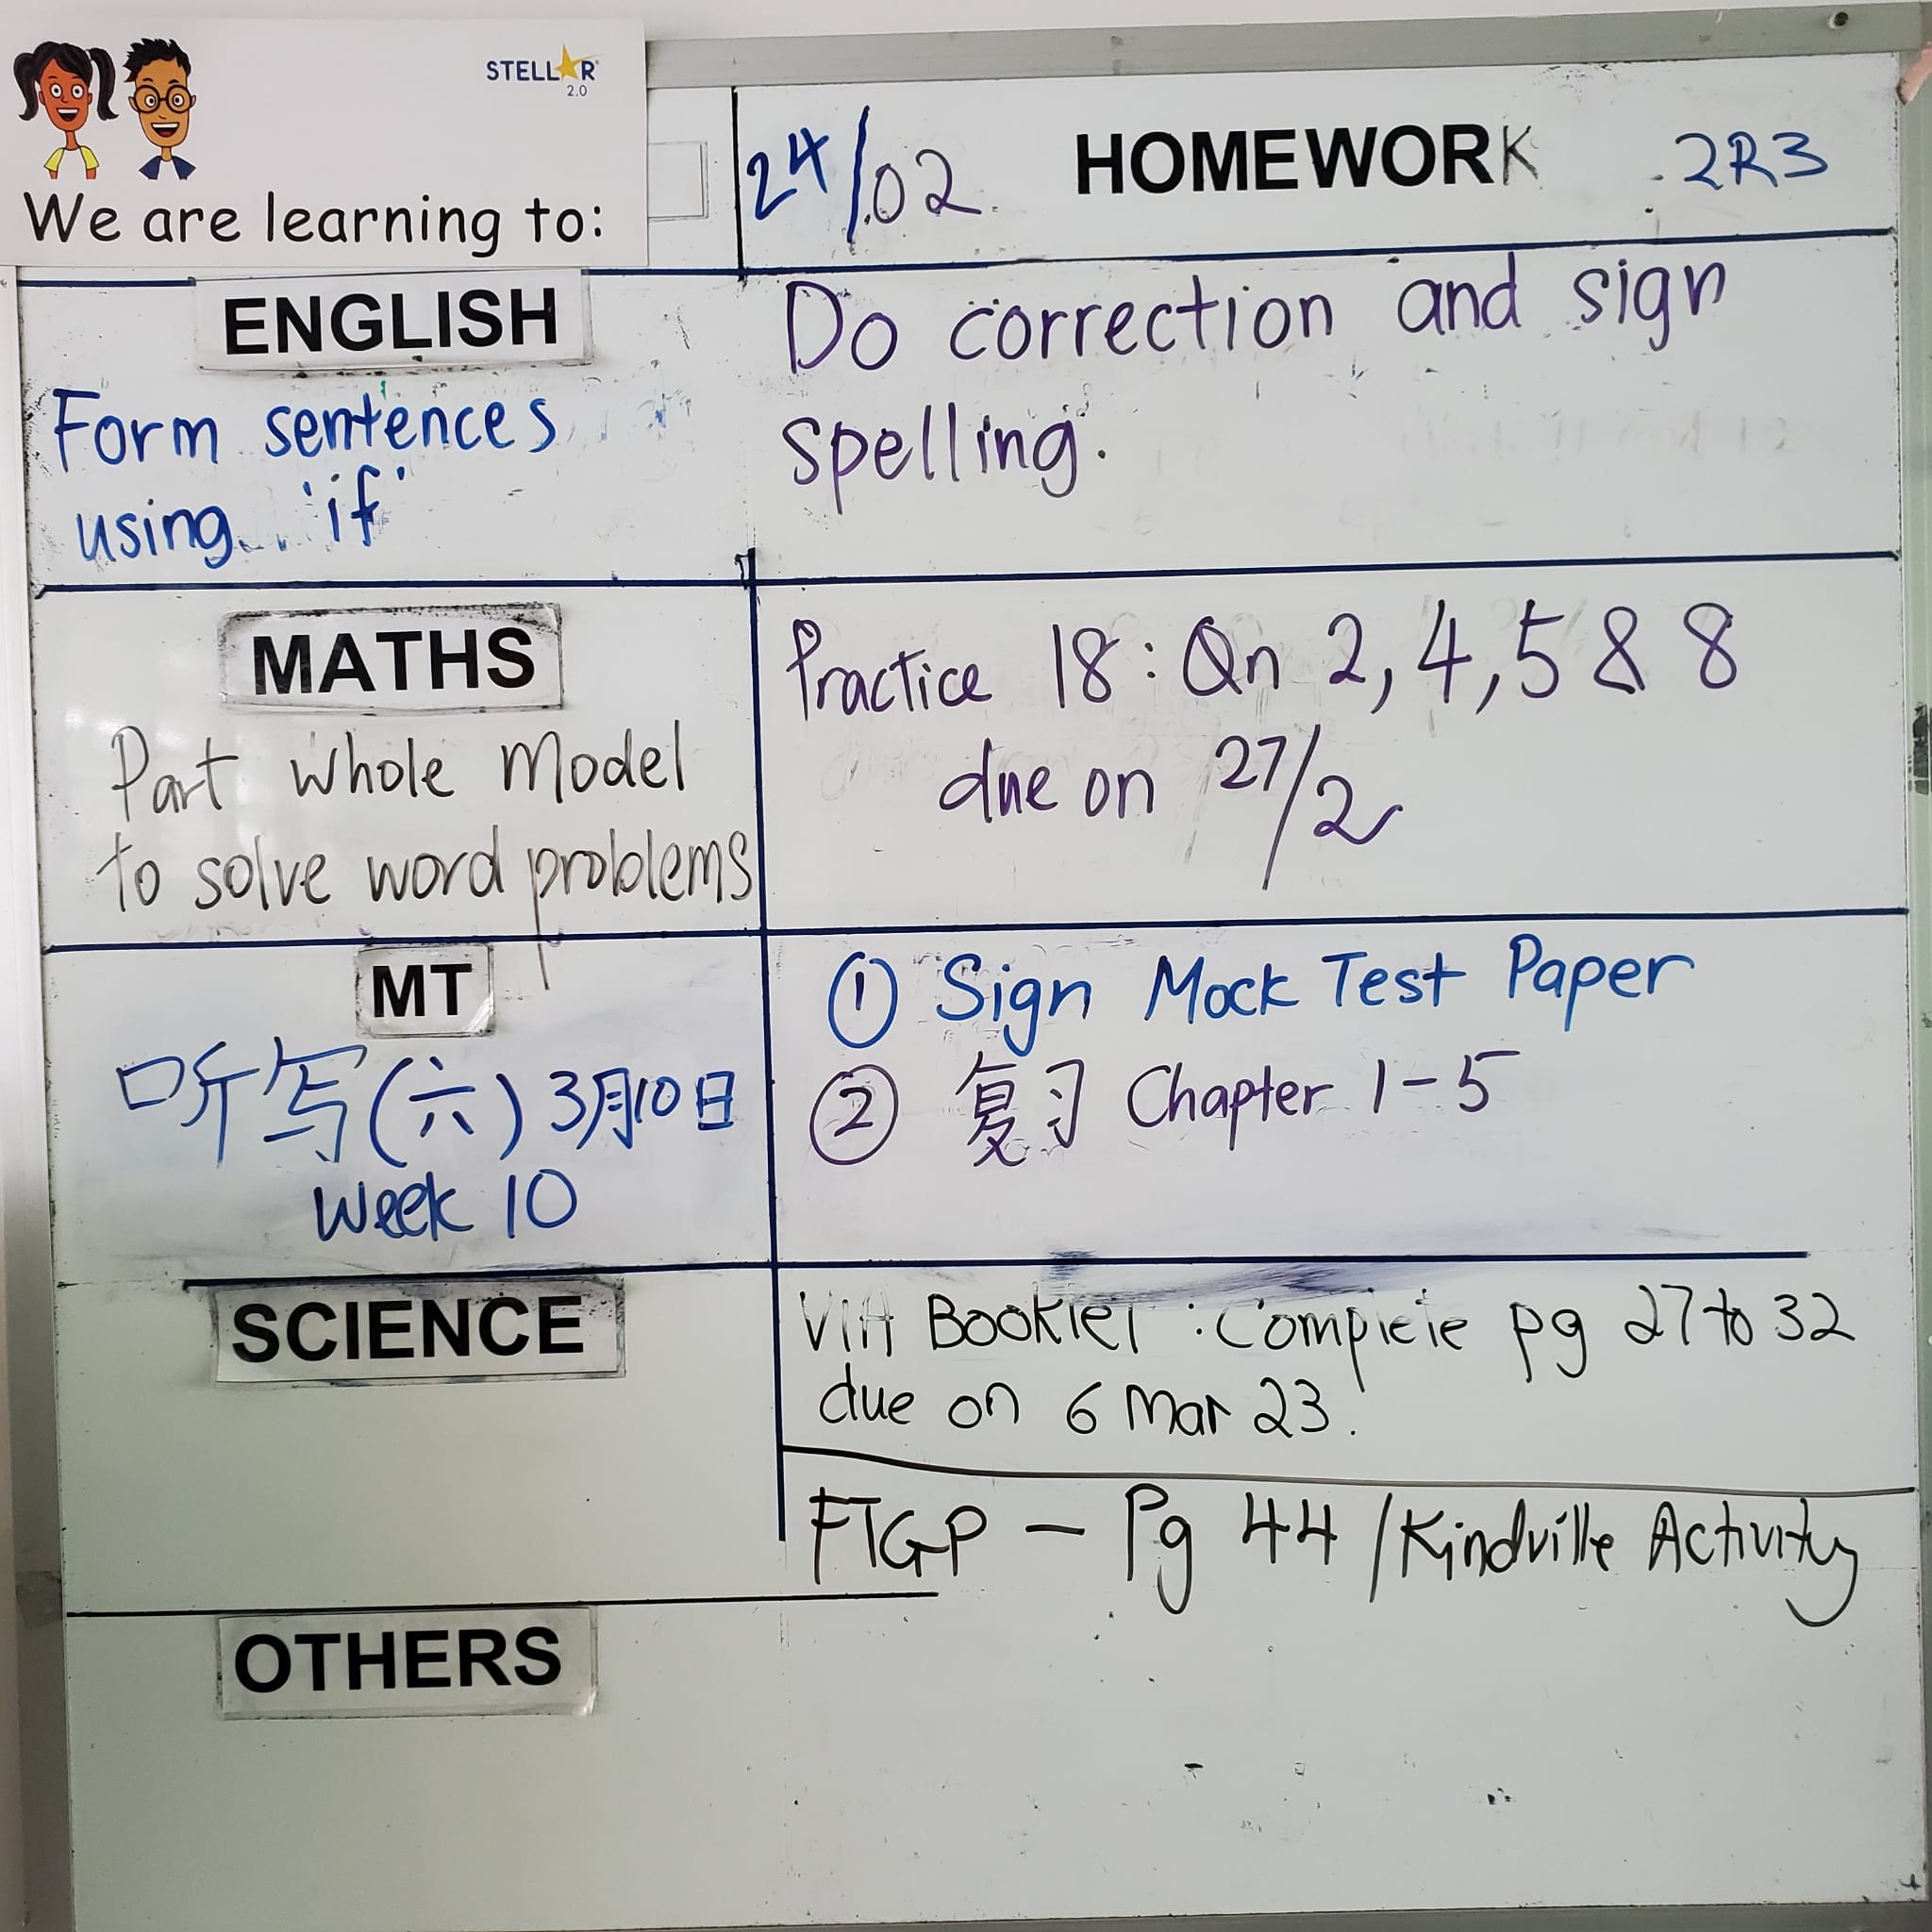 STELLAR 2.0
We are learning to:
24/02 HOMEWORK 2R3
ENGLISH
Form sentences
using 'if'
Do correction and sign
spelling.
MATHS
Part whole model
to solve word problems
Practice 18: Qn 2, 4, 5 & 8
due on 27/2
MT
听写(六) 3月10日
Week 10
① Sign Mock Test Paper
② 复习 Chapter 1-5
SCIENCE
VIA Booklet : Complete pg 27 to 32
due on 6 Mar 23.
FTGP - Pg 44 / Kindville Activity
OTHERS